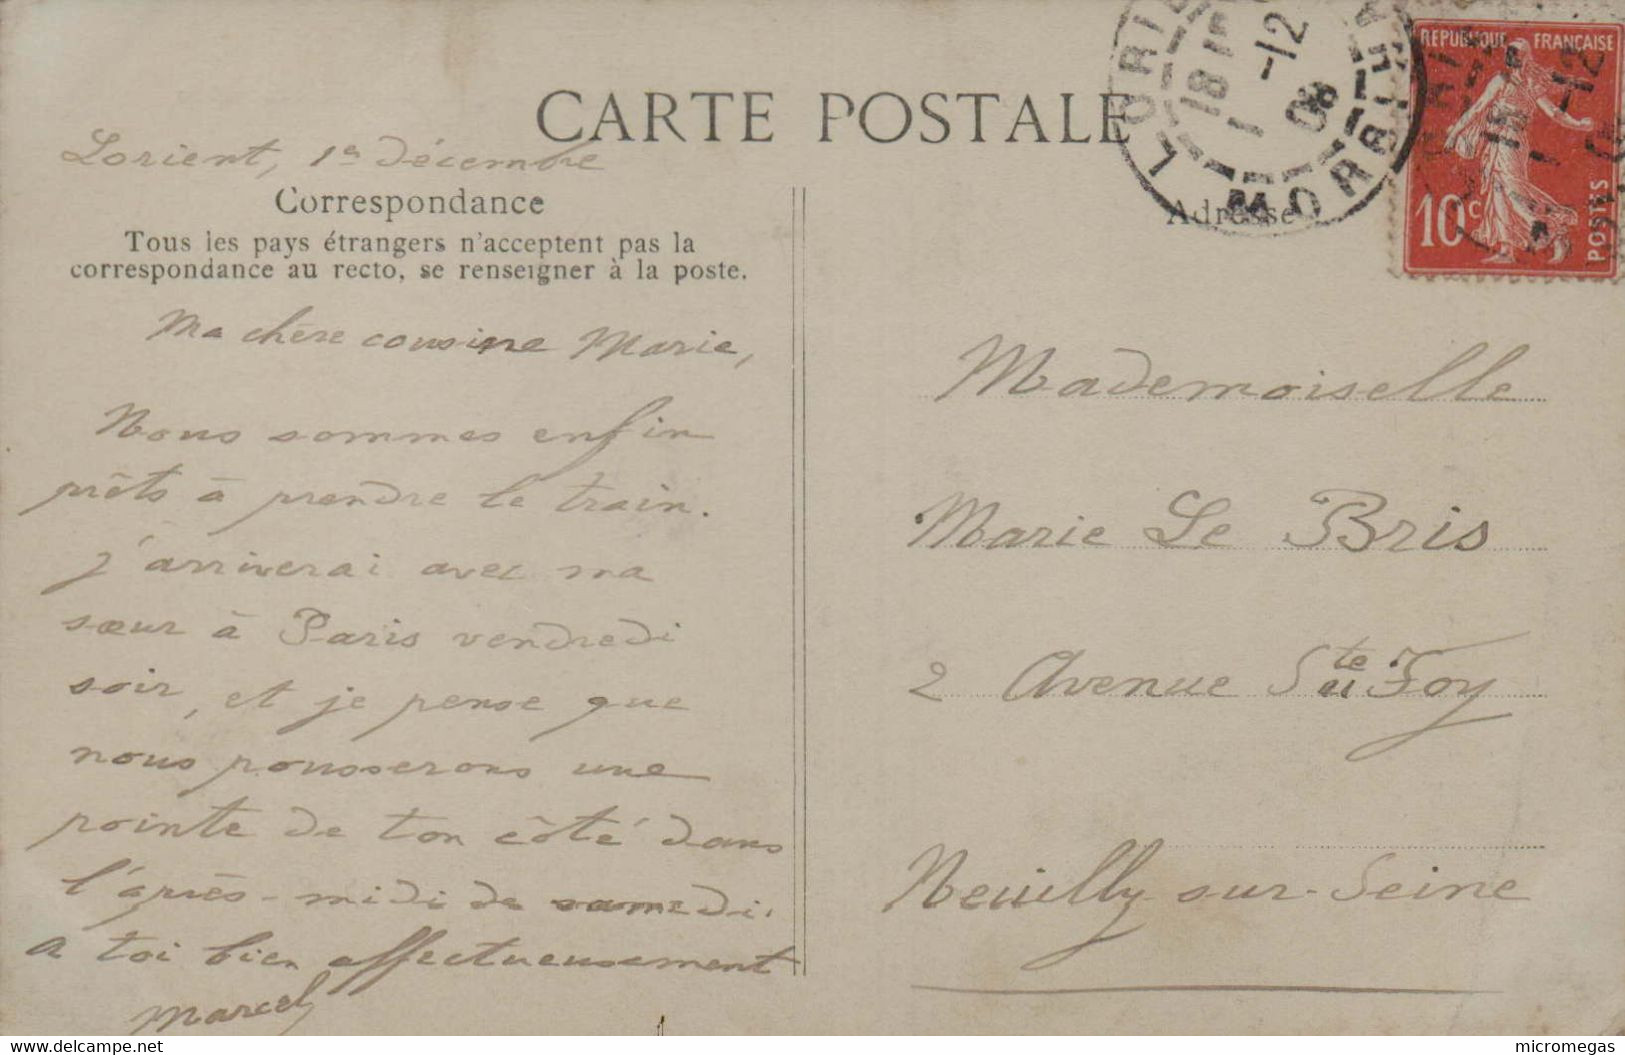 CARTE POSTALE
Lorient, 1er décembre
Correspondance
Tous les pays étrangers n'acceptent pas la
correspondance au recto, se renseigner à la poste.
Ma chère cousine Marie,
Nous sommes enfin
prêts à prendre le train.
j'arriverai avec ma
sœur à Paris vendredi
soir, et je pense que
nous pousserons une
pointe de ton côté dans
l'après-midi de samedi.
a toi bien affectueusement
Marcel
Adresse
Mademoiselle
Marie Le Bris
2 Avenue Ste Foy
Neuilly-sur-Seine
LORIENT
18 15
1 -12
08
MORBIHAN
REPUBLIQUE FRANÇAISE
10c
POSTES
www.delcampe.net
micromegas